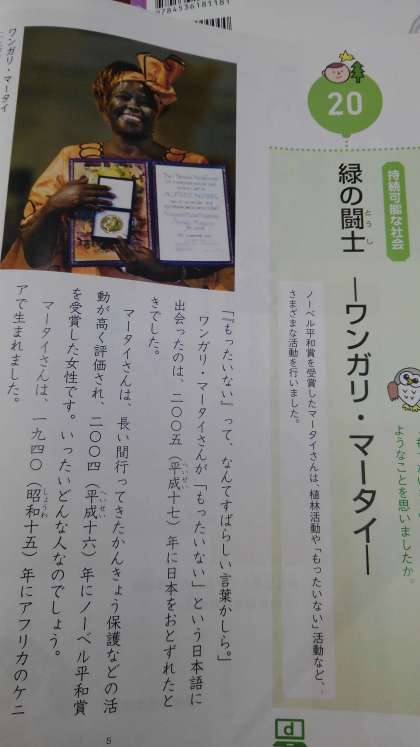 9784536181181
20
持続可能な社会
緑の闘士
とうし
―ワンガリ・マータイ―
ようなことを思いましたか。
ノーベル平和賞を受賞したマータイさんは、植林活動や「もったいない」活動など、
さまざまな活動を行いました。
ワンガリ・マータイ
「『もったいない』って、なんてすばらしい言葉かしら。」
ワンガリ・マータイさんが「もったいない」という日本語に
出会ったのは、二〇〇五（平成十七）年に日本をおとずれたと
へいせい
きでした。
マータイさんは、長い間行ってきたかんきょう保護などの活
動が高く評価され、二〇〇四（平成十六）年にノーベル平和賞
へいせい
を受賞した女性です。いったいどんな人なのでしょう。
マータイさんは、一九四〇（昭和十五）年にアフリカのケニ
しょうわ
アで生まれました。
5
d